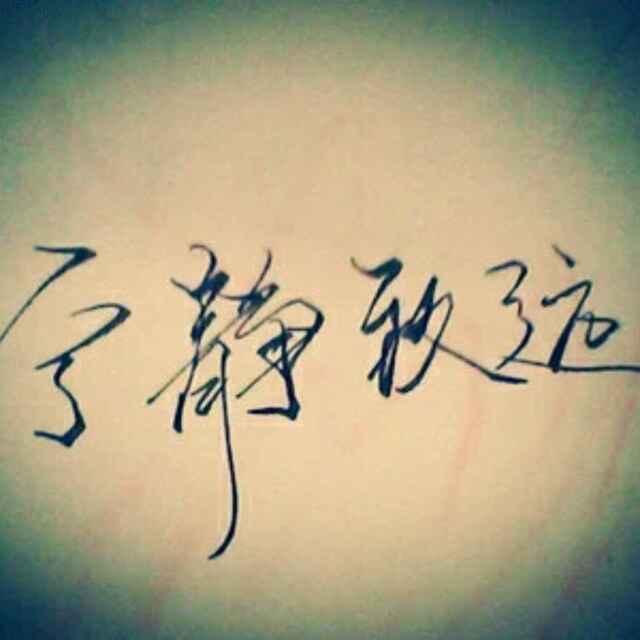 宁静致远